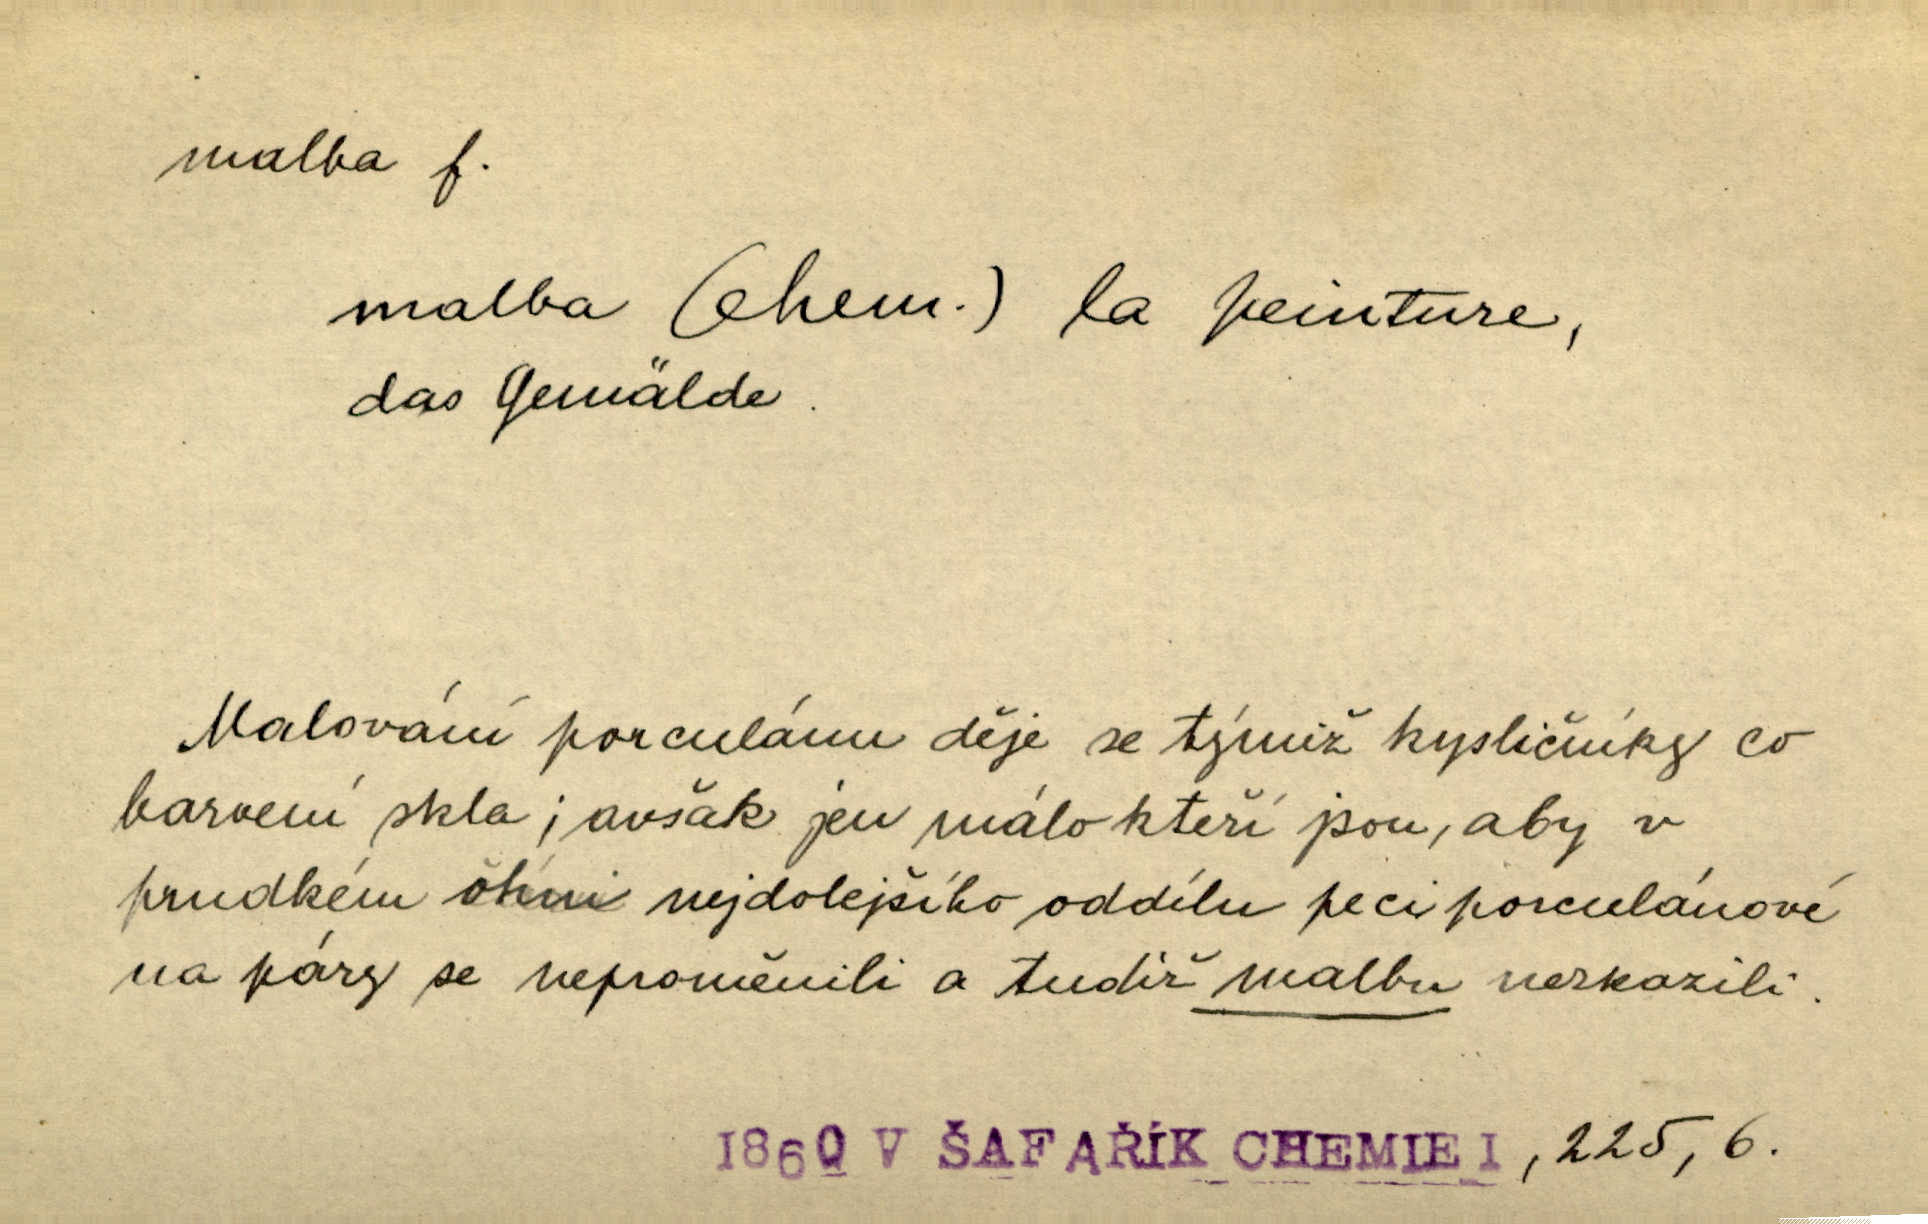 malba f.
malba (chem.) la peinture,
das Gemälde.
Malování porculánu děje se týmiž kysličníky co
barvení skla; avšak jen málo kteří jsou, aby v
prudkém ohni nejdolejšího oddílu peci porculánové
na páry se neproměnili a tudíž malbu nezkazili.
1860 V ŠAFAŘÍK CHEMIE I, 225, 6.